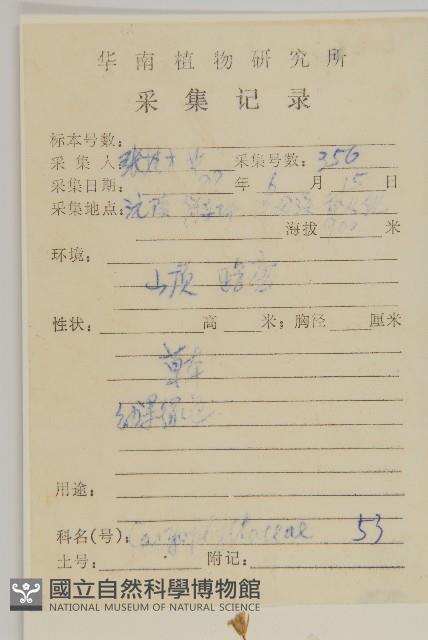 华南植物研究所
采集记录
标本号数:
采集人 张 采集号数: 356
采集日期: 年 6 月 15 日
采集地点:
海拔 900 米
环境:
山顶
性状: 高 米; 胸径 厘米
草本
用途:
科名(号): Caryophyllaceae 53
土号: 附记:
國立自然科學博物館
NATIONAL MUSEUM OF NATURAL SCIENCE